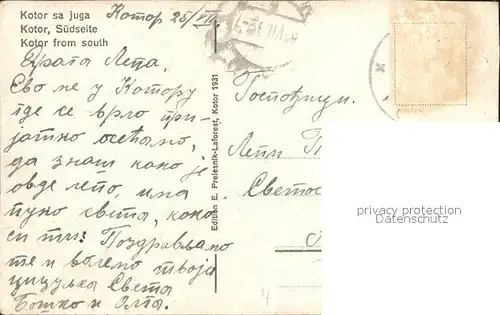 Kotor sa juga
Kotor, Südseite
Kotor from south
Котор 25/VII
Драга Лепа,
Ево ме у Котору
где се врло при-
јатно осећамо,
да знаш како је
овде лепо, има
пуно света, како
си ти? Поздрављамо
те и волемо твоја
цицулка Света
Бошко и Олга.
Edition E. Prelesnik-Laforest, Kotor 1931
Госпођици.
Лепи
Светос
privacy protection
Datenschutz
4